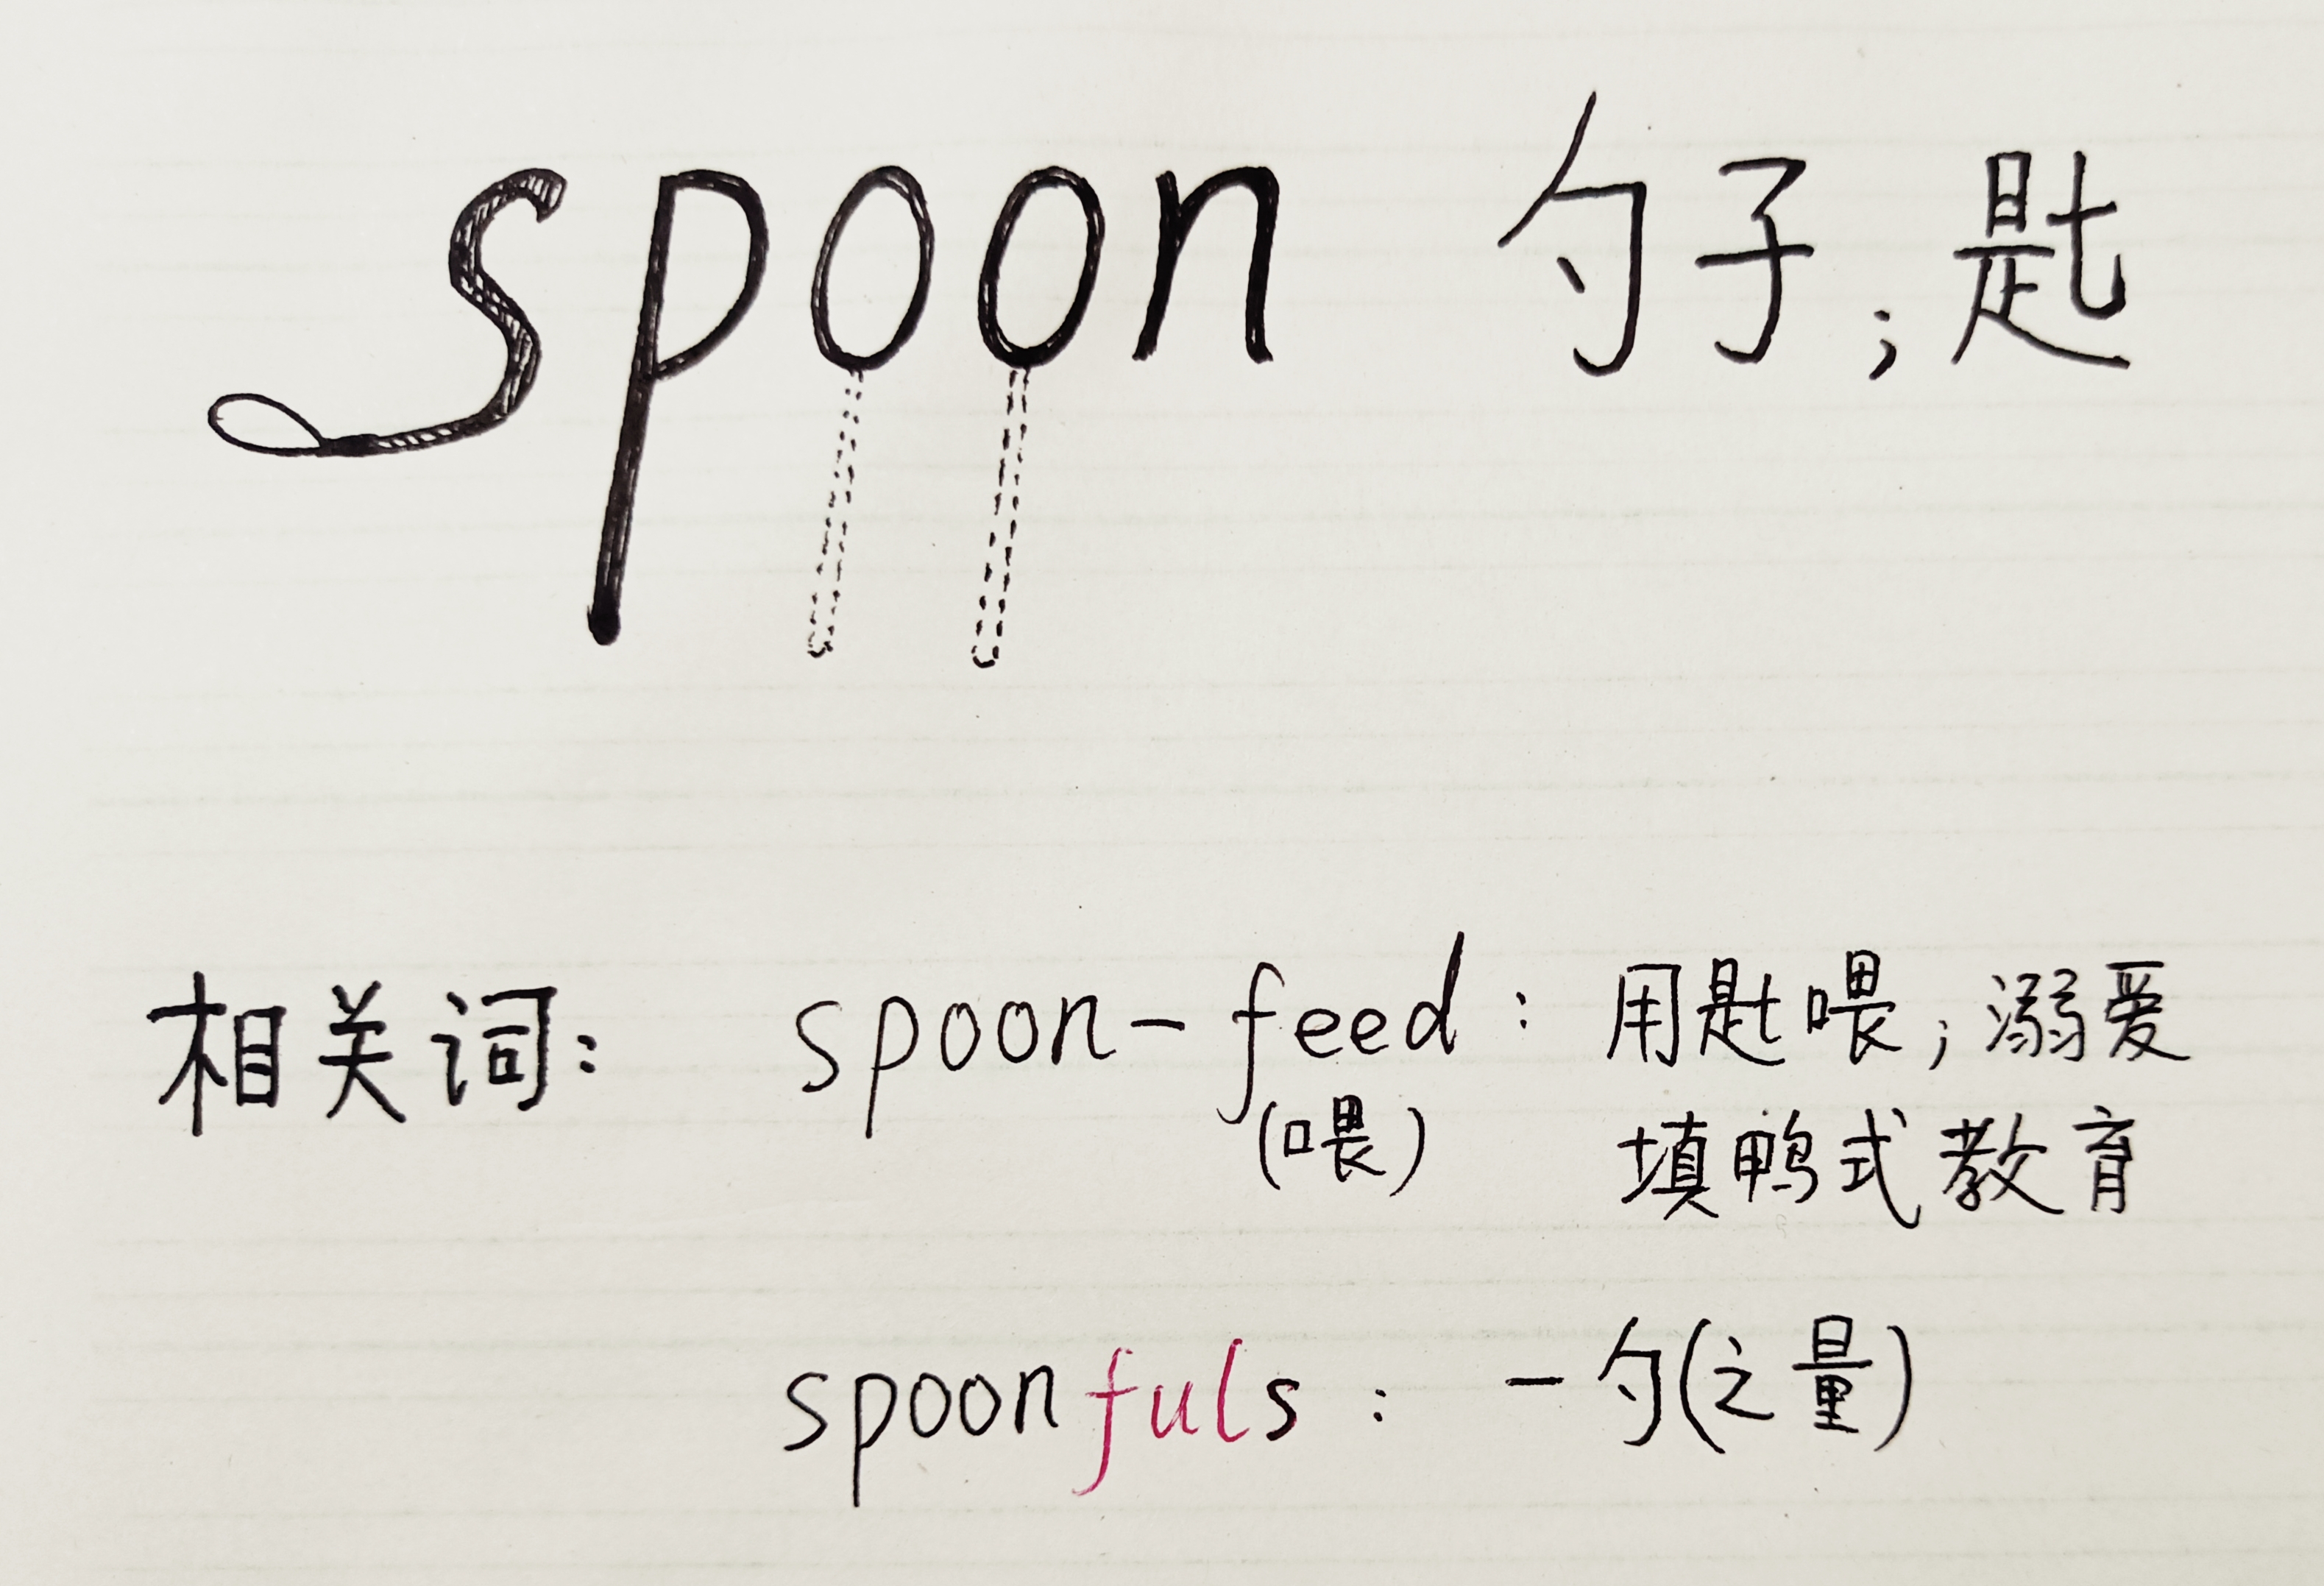 spoon 勺子；匙
相关词： spoon-feed： 用匙喂；溺爱
(喂) 填鸭式教育
spoonfuls： 一勺(之量)